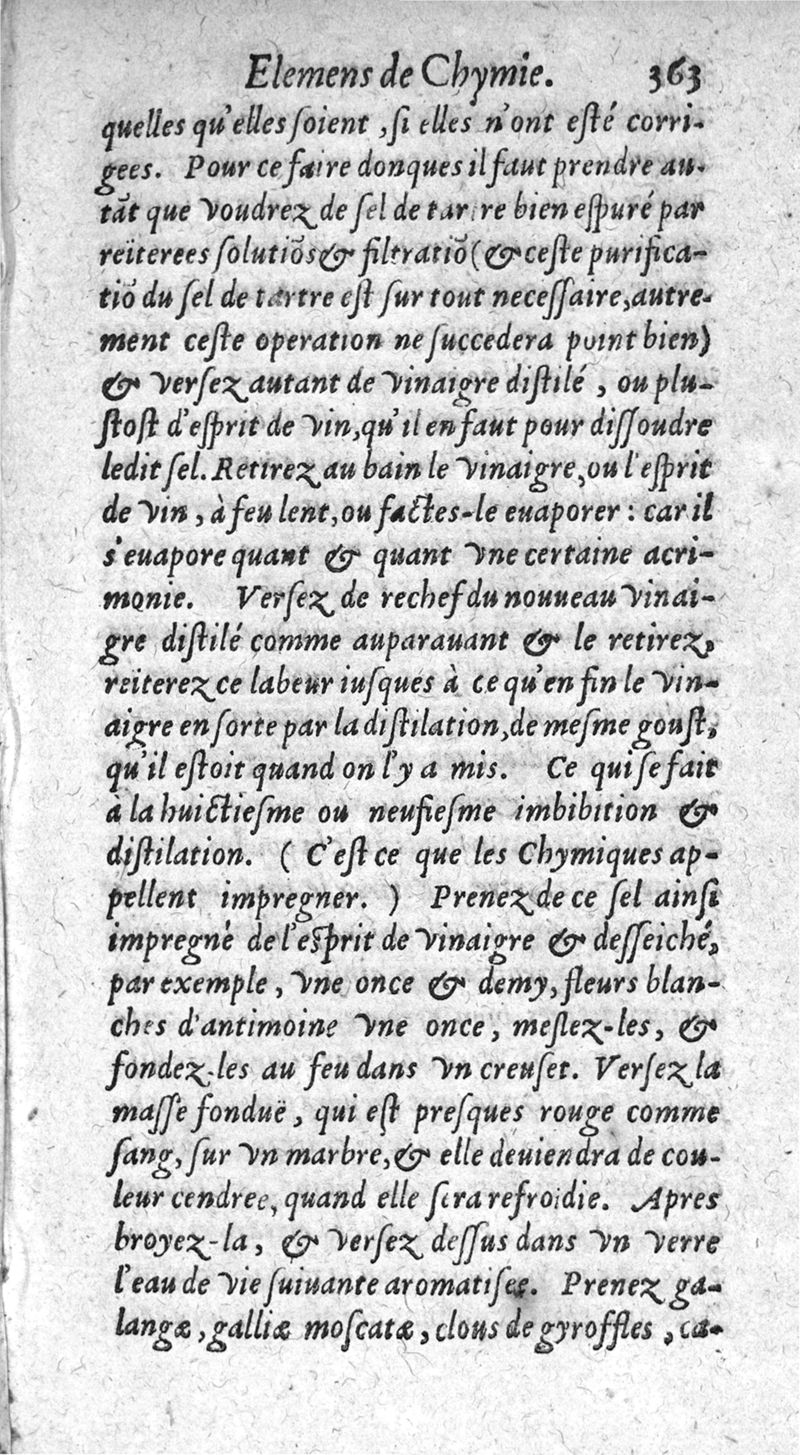 Elemens de Chymie. 363
quelles qu'elles ſoient, ſi elles n'ont eſté corri-
gees. Pour ce faire donques il faut prendre au-
tāt que voudrez de ſel de tartre bien eſpuré par
reïterees ſolutiōs & filtratiō (& ceſte purifica-
tiō du ſel de tartre eſt ſur tout neceſſaire, autre-
ment ceſte operation ne ſuccedera point bien)
& verſez autant de vinaigre diſtilé, ou plu-
ſtoſt d'eſprit de vin, qu'il en faut pour diſſoudre
ledit ſel. Retirez au bain le vinaigre, ou l'eſprit
de vin, à feu lent, ou faictes-le euaporer : car il
s'euapore quant & quant vne certaine acri-
monie. Verſez de rechef du nouueau vinai-
gre diſtilé comme auparauant & le retirez,
reïterez ce labeur iuſques à ce qu'en fin le vin-
aigre en ſorte par la diſtilation, de meſme gouſt,
qu'il eſtoit quand on l'y a mis. Ce qui ſe fait
à la huictieſme ou neufieſme imbibition &
diſtilation. ( C'eſt ce que les Chymiques ap-
pellent impregner. ) Prenez de ce ſel ainſi
impregné de l'eſprit de vinaigre & deſſeiché,
par exemple, vne once & demy, fleurs blan-
ches d'antimoine vne once, meſlez-les, &
fondez-les au feu dans vn creuſet. Verſez la
maſſe fonduë, qui eſt preſques rouge comme
ſang, ſur vn marbre, & elle deuiendra de cou-
leur cendree, quand elle ſera refroidie. Apres
broyez-la, & verſez deſſus dans vn verre
l'eau de vie ſuiuante aromatiſee. Prenez ga-
langæ, galliæ moſcatæ, clous de gyroffles, ca-